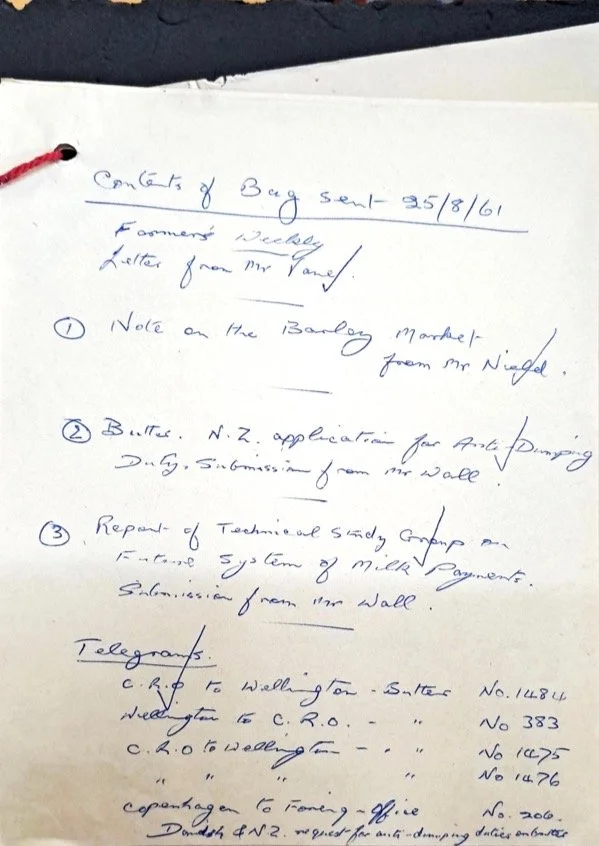 Contents of Bag sent 25/8/61
Farmer's Weekly
Letter from Mr
① Note on the Barley Market
from Mr
② Butter. N.Z. application for Anti-Dumping
Duty. Submission from Mr Wall
③ Report of Technical Study Group on
Future System of Milk Payments.
Submission from Mr Wall.
Telegrams.
C.R.O to Wellington - Butter No. 1484
Wellington to C.R.O. - " No 383
C.R.O to Wellington - " No 1475
" " " " No 1476
Copenhagen to Foreign-Office No. 206.
Danish & N.Z. request for anti-dumping duties on butter